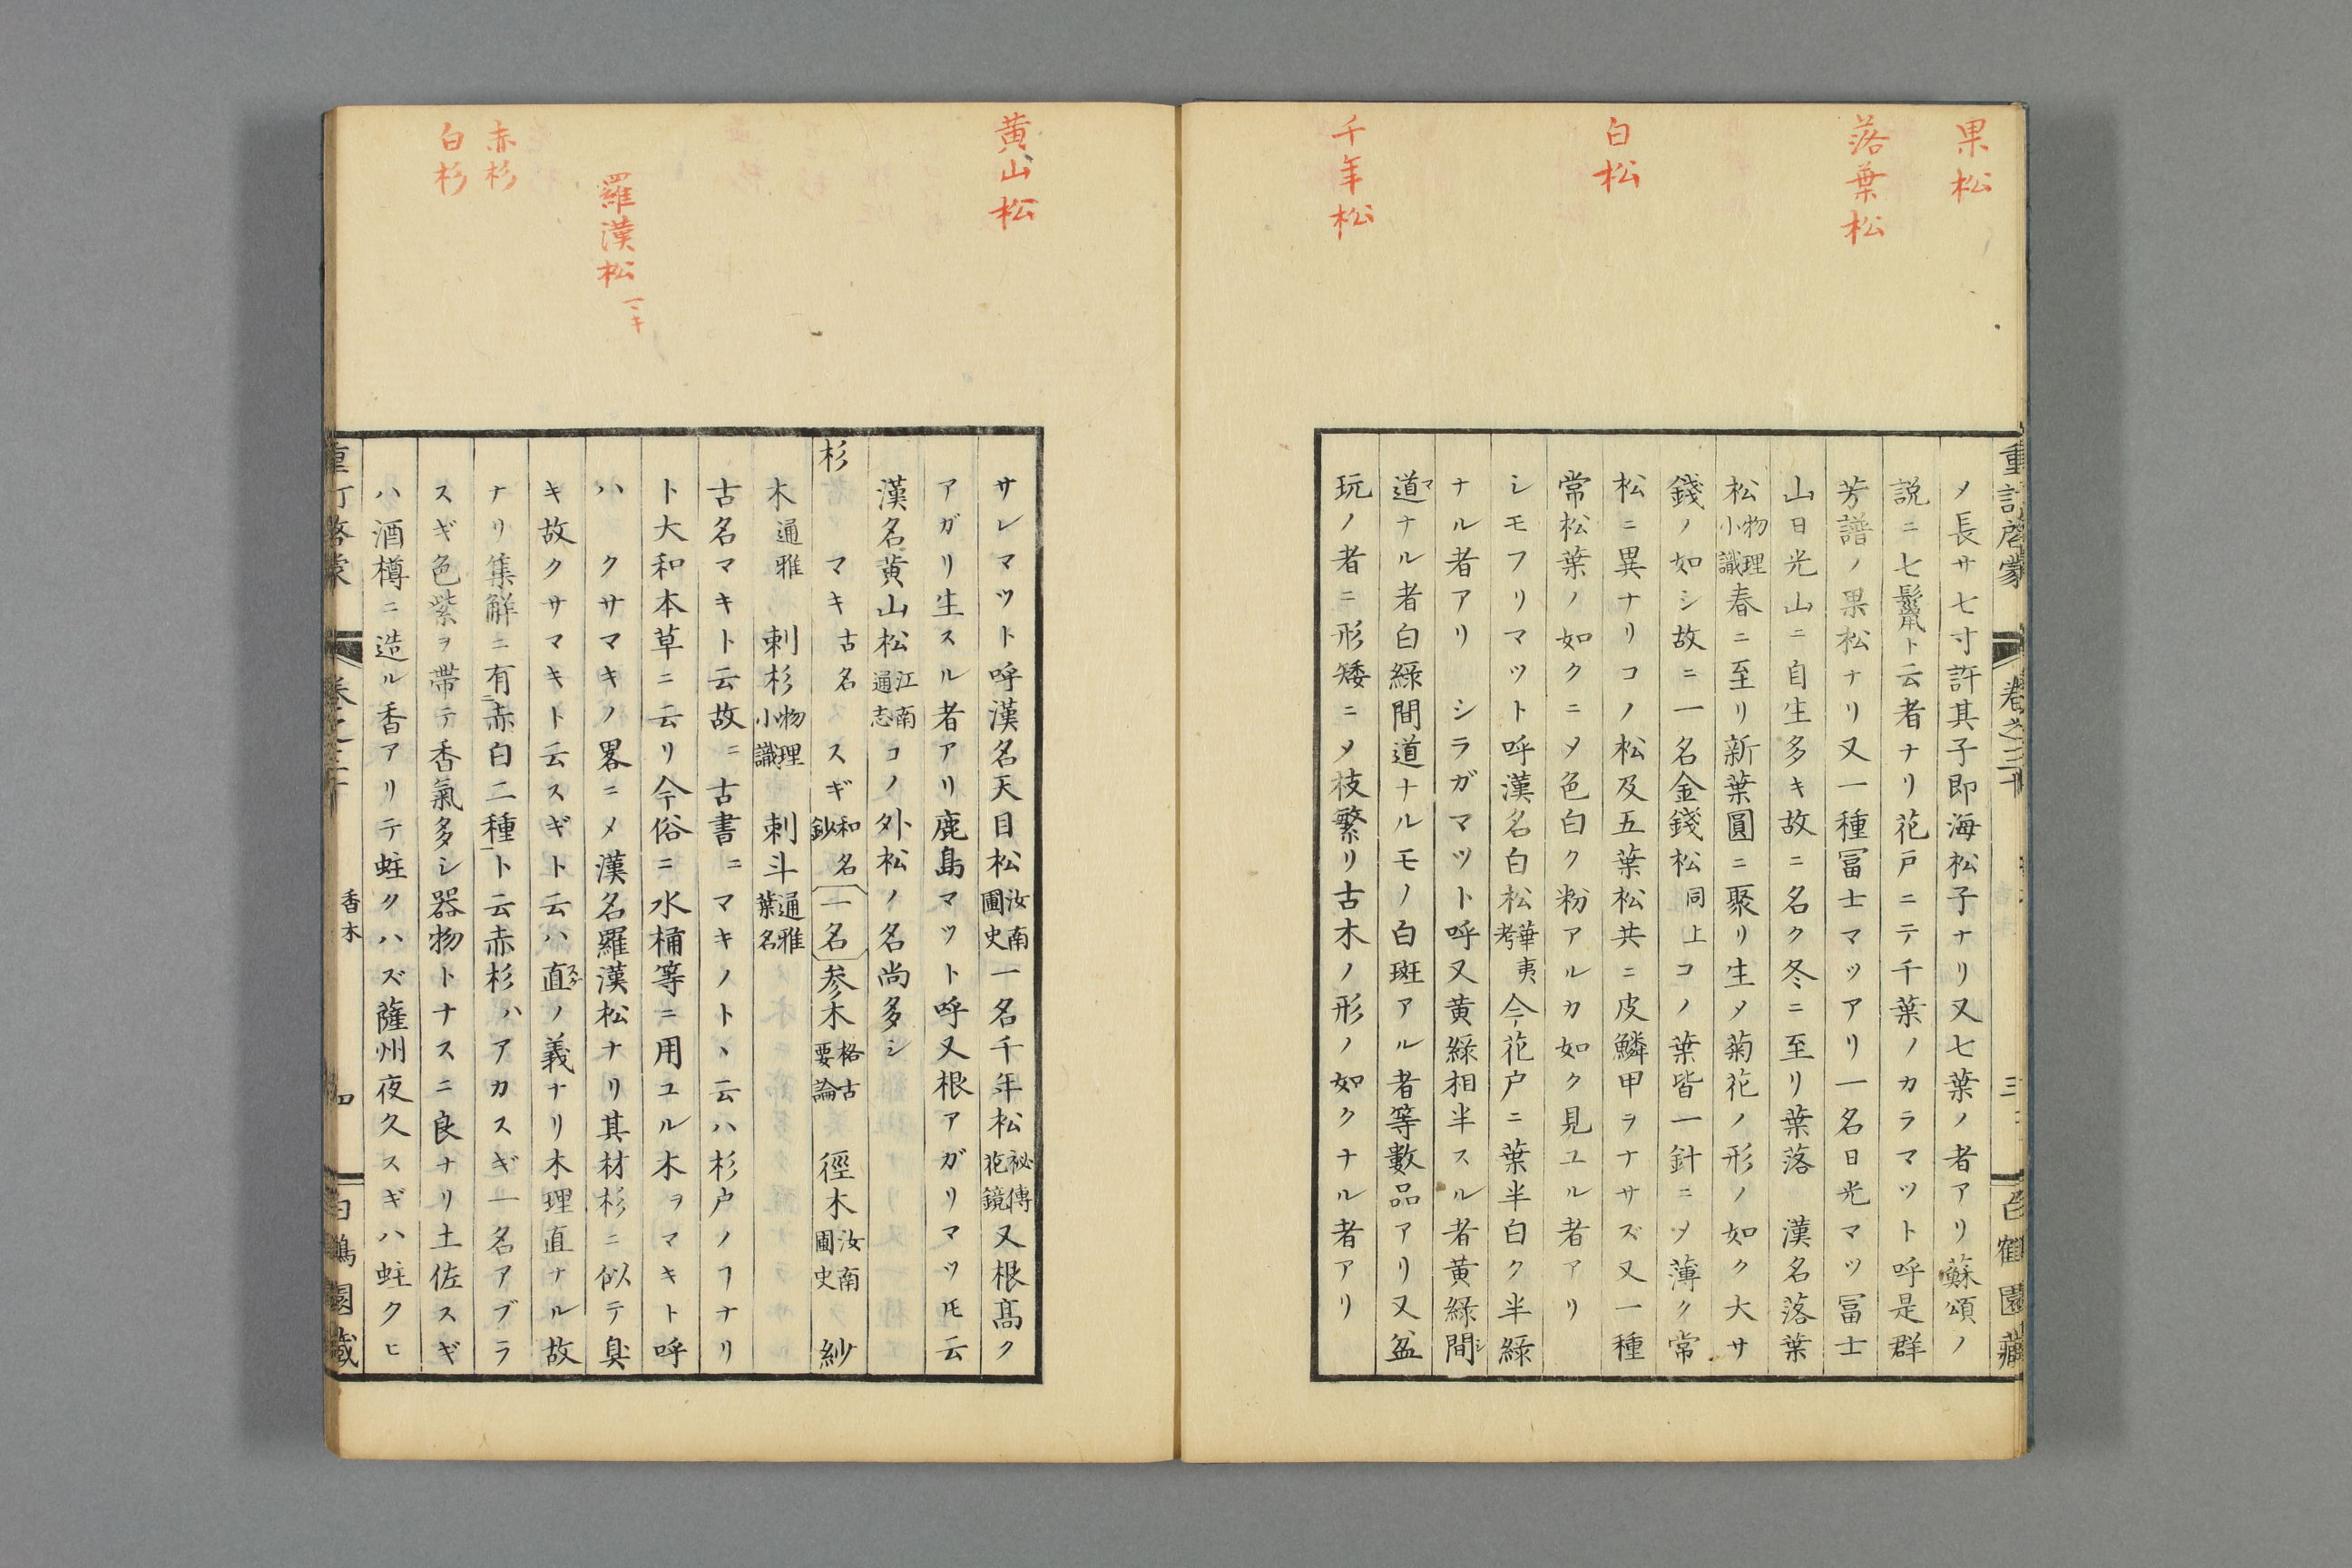 果松
落葉松
白松
千年松
重訂啓蒙 卷之三十 三 白鶴園藏
ノ長サ七寸許其子即海松子ナリ又七葉ノ者アリ蘇頌ノ
説ニ七鬛ト云者ナリ花戸ニテ千葉ノカラマツト呼是群
芳譜ノ果松ナリ又一種冨士マツアリ一名日光マツ冨士
山日光山ニ自生多キ故ニ名ク冬ニ至リ葉落 漢名落葉
松物理小識春ニ至リ新葉圓ニ聚リ生〆菊花ノ形ノ如ク大サ
錢ノ如シ故ニ一名金錢松同上コノ葉皆一針ニ〆薄ク常
松ニ異ナリコノ松及五葉松共ニ皮鱗甲ヲナサズ又一種
常松葉ノ如クニ〆色白ク粉アルカ如ク見ユル者アリ
シモフリマツト呼漢名白松華夷考今花戸ニ葉半白ク半綠
ナル者アリ シラガマツト呼又黄綠相半スル者黄綠間シ
道マナル者白綠間道ナルモノ白斑アル者等數品アリ又盆
玩ノ者ニ形矮ニ〆枝繁リ古木ノ形ノ如クナル者アリ
黄山松
羅漢松 マキ
赤杉
白杉
サレマツト呼漢名天目松汝南圃史一名千年松祕傳花鏡又根髙ク
アガリ生スル者アリ鹿島マツト呼又根アガリマツ𪜈云
漢名黄山松江南通志コノ外松ノ名尚多シ
杉 マキ古名 スギ和名鈔 一名 參木格古要論 徑木汝南圃史 紗
木通雅 刺杉物理小識 刺斗通雅葉名
古名マキト云故ニ古書ニマキノトヽ云ハ杉戸ノヿナリ
ト大和本草ニ云リ今俗ニ水桶等ニ用ユル木ヲマキト呼
ハ クサマキノ畧ニ〆漢名羅漢松ナリ其材杉ニ似テ臭
キ故クサマキト云スギト云ハ直スグノ義ナリ木理直ナル故
ナリ集解ニ有二赤白二種一ト云赤杉ハアカスギ一名アブラ
スギ色紫ヲ帶テ香氣多シ器物トナスニ良ナリ土佐スギ
ハ酒樽ニ造ル香アリテ蛀クハズ薩州夜久スギハ蛀クヒ
重訂啓蒙 卷之三十 香木 四 白鶴園藏